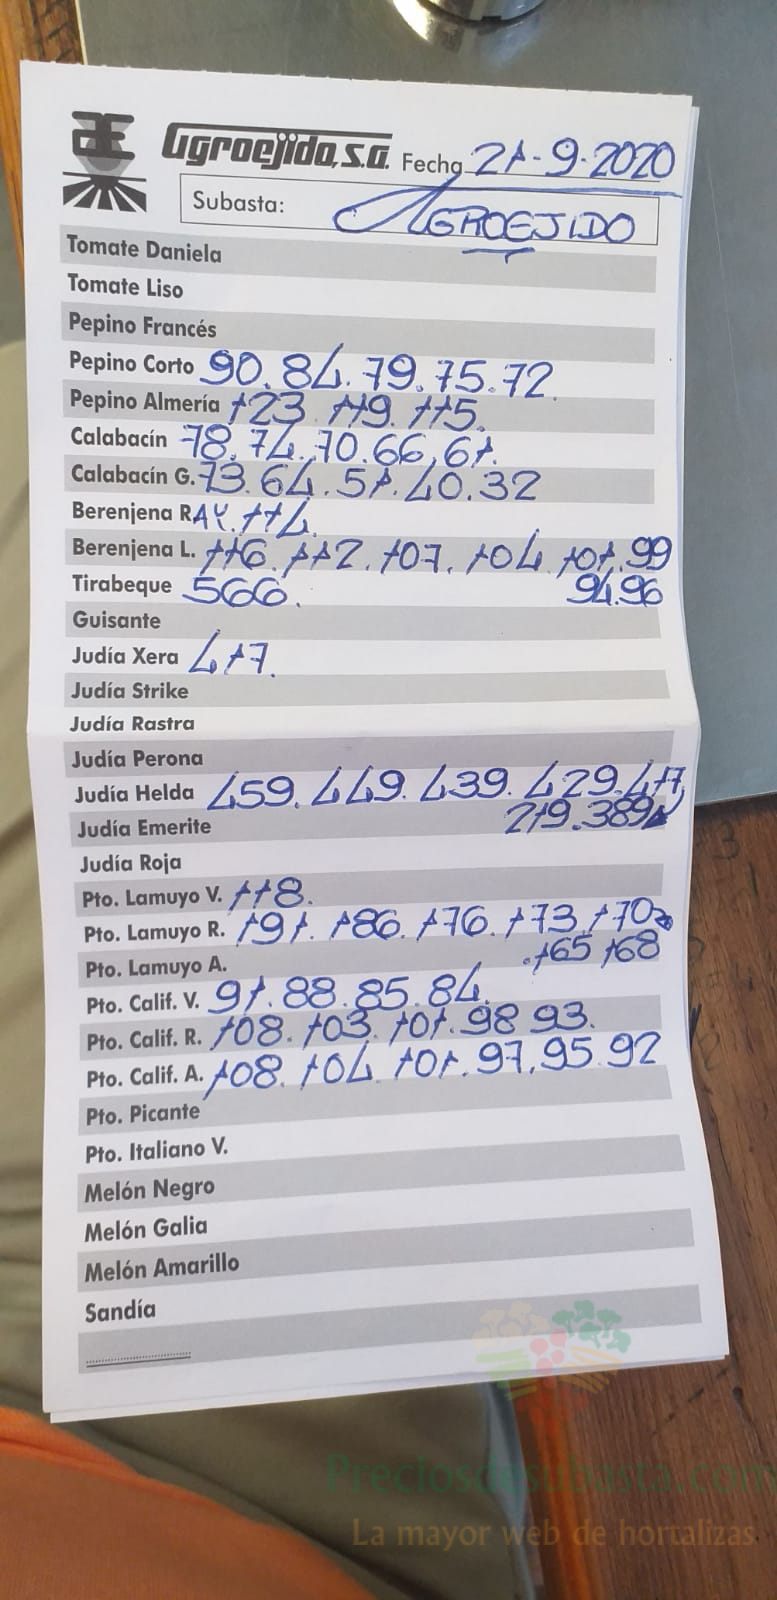 Agroejido, S.A. Fecha 21-9-2020
Subasta: AGROEJIDO
Tomate Daniela
Tomate Liso
Pepino Francés
Pepino Corto 90. 84. 79. 75. 72.
Pepino Almería 123 119. 115.
Calabacín 78. 74. 70. 66. 61.
Calabacín G. 73. 64. 51. 40. 32
Berenjena RAY. 114.
Berenjena L. 116. 112. 107. 104. 101. 99
94. 96
Tirabeque 566.
Guisante
Judía Xera 417.
Judía Strike
Judía Rastra
Judía Perona
Judía Helda 459. 449. 439. 429. 417
219. 389
Judía Emerite
Judía Roja
Pto. Lamuyo V. 118.
Pto. Lamuyo R. 191. 186. 176. 173. 170
. 165 168
Pto. Lamuyo A.
Pto. Calif. V. 91. 88. 85. 84.
Pto. Calif. R. 108. 103. 101. 98 93.
Pto. Calif. A. 108. 104. 101. 97. 95. 92
Pto. Picante
Pto. Italiano V.
Melón Negro
Melón Galia
Melón Amarillo
Sandía
Preciosdesubasta.com
La mayor web de hortalizas